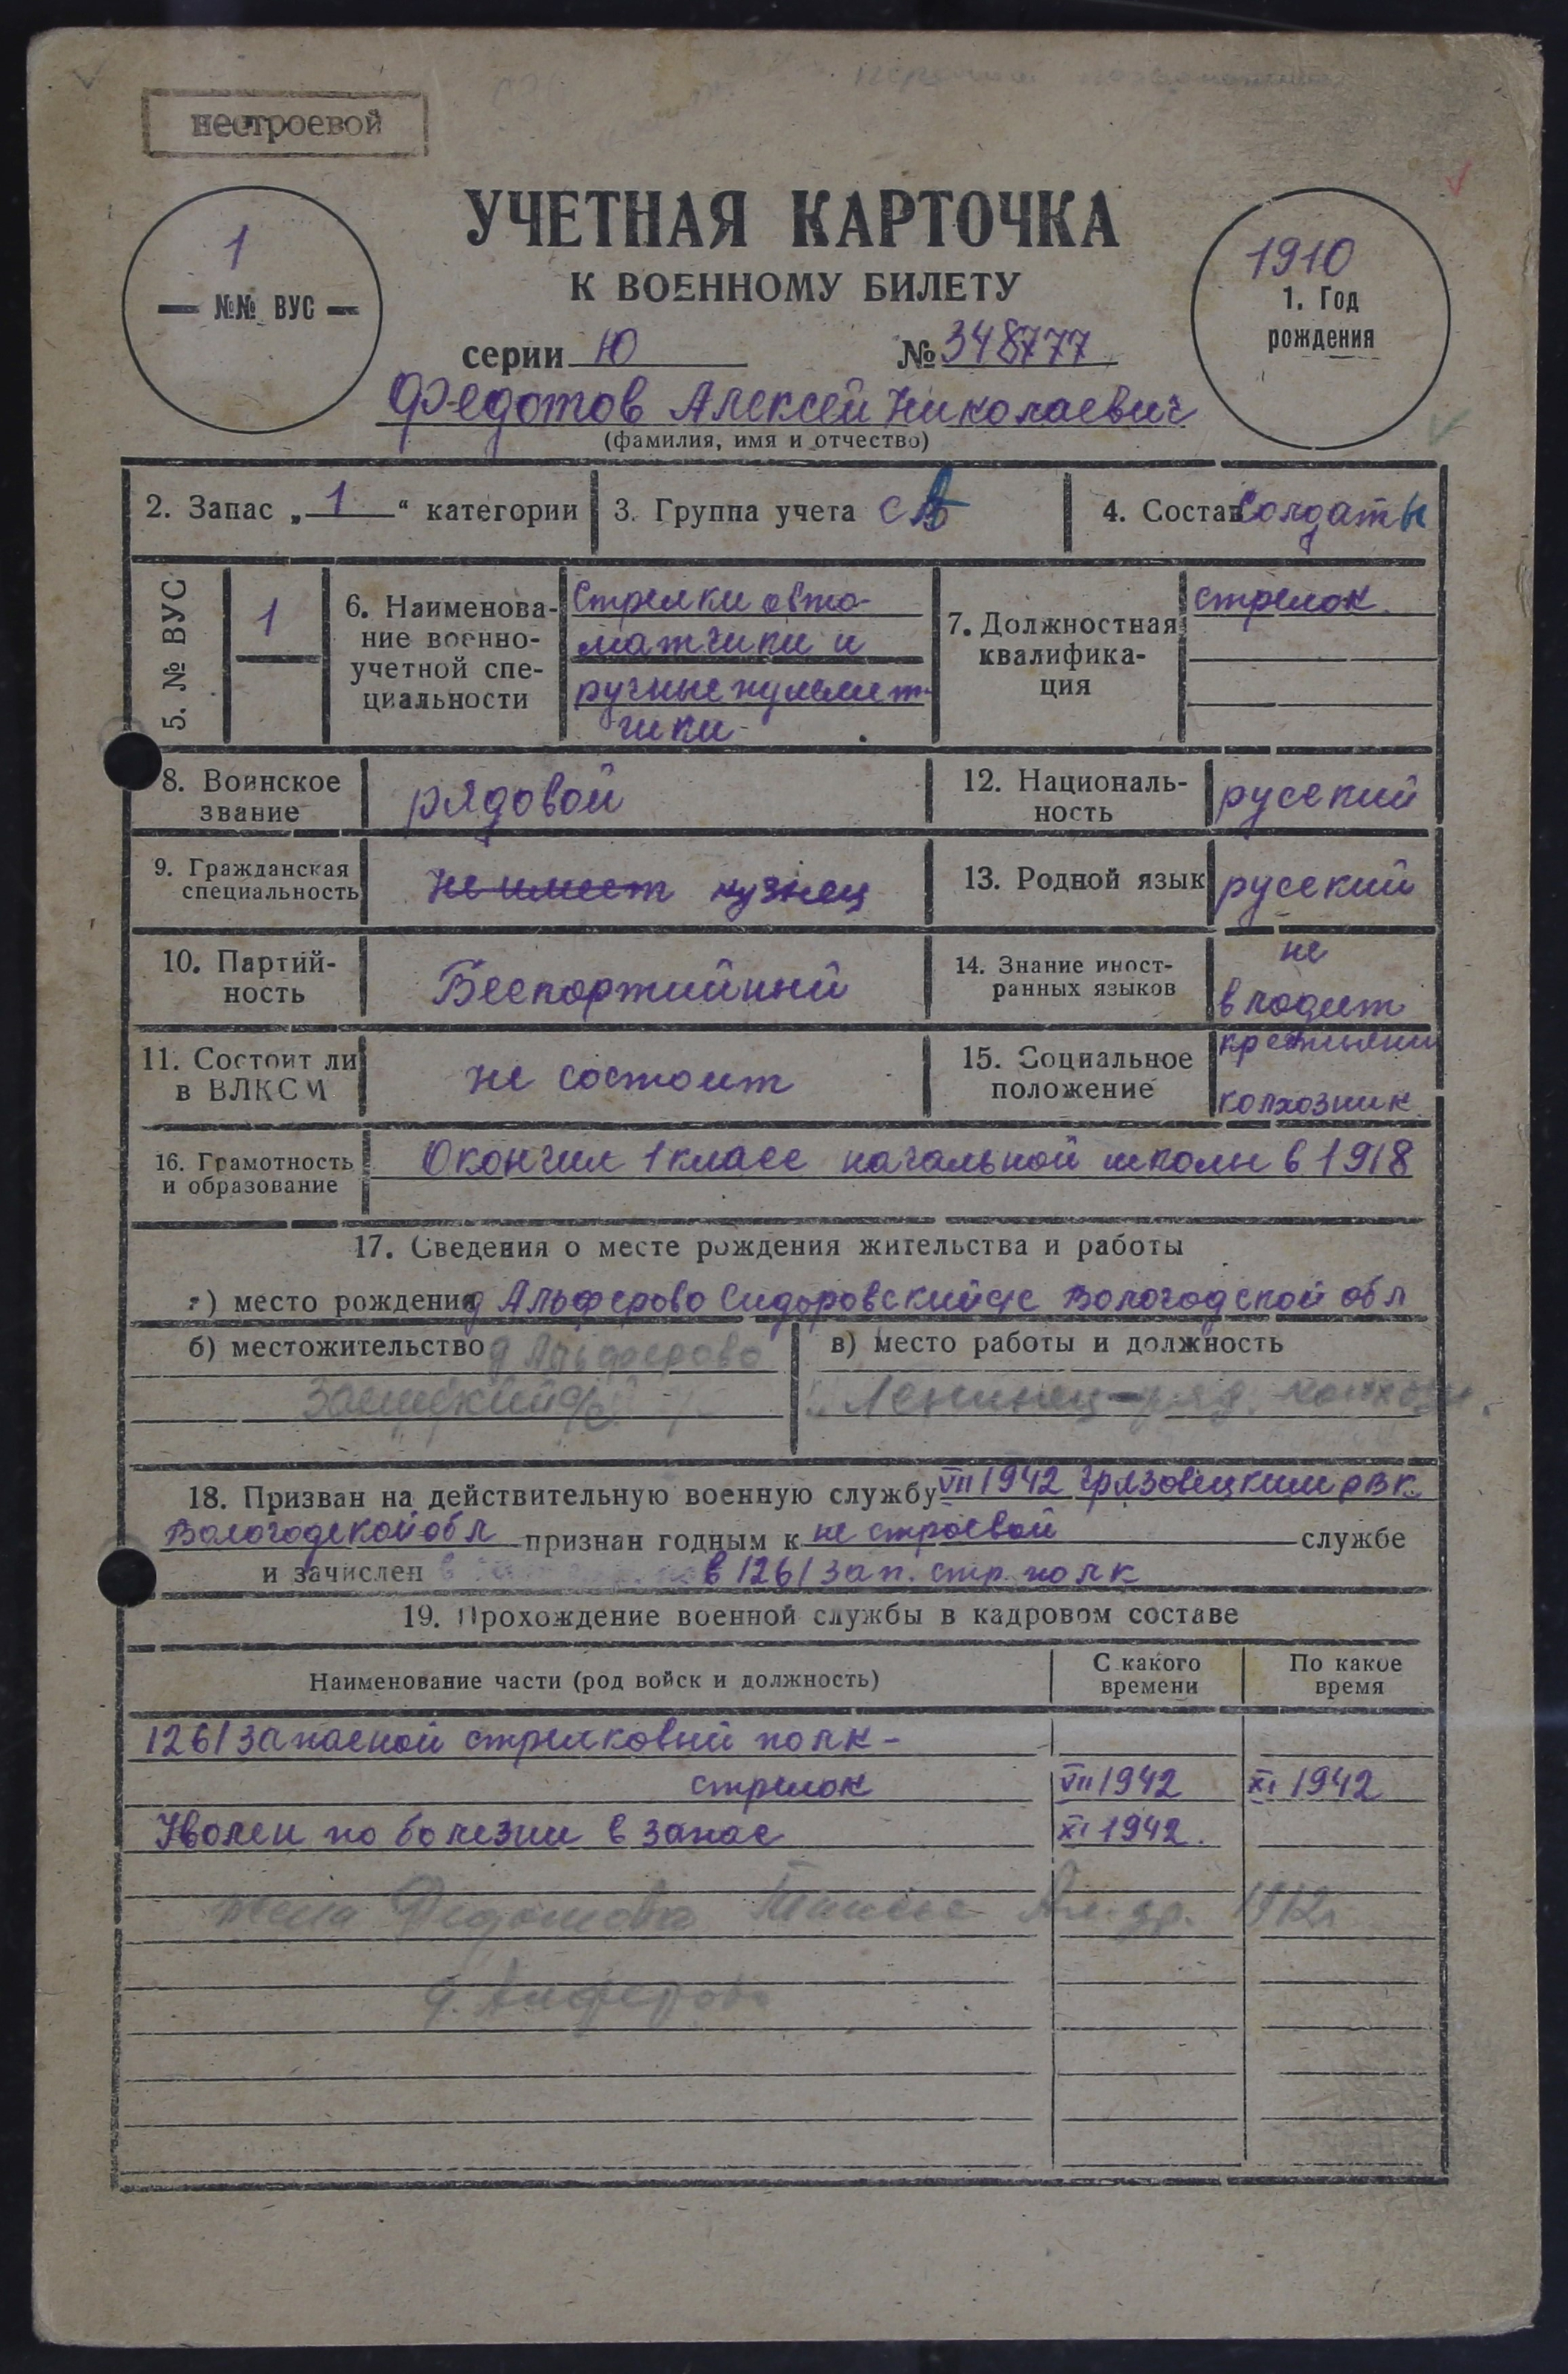 нестроевой
УЧЕТНАЯ КАРТОЧКА
К ВОЕННОМУ БИЛЕТУ
1
№№ ВУС
1910
1. Год
рождения
серии Ю № 348777
Федотов Алексей Николаевич
(фамилия, имя и отчество)
2. Запас „1“ категории
3. Группа учета СА
4. Состав Солдаты
5. № ВУС
1
6. Наименова-
ние военно-
учетной спе-
циальности
Стрелки авто-
матчики и
ручные пулемет-
чики
7. Должностная
квалифика-
ция
стрелок
8. Воинское
звание
рядовой
12. Националь-
ность
русский
9. Гражданская
специальность
Не имеет кузнец
13. Родной язык
русский
10. Партий-
ность
Беспартийный
14. Знание иност-
ранных языков
не
владеет
11. Состоит ли
в ВЛКСМ
не состоит
15. Социальное
положение
колхозник
16. Грамотность
и образование
Окончил 1 класс начальной школы в 1918
17. Сведения о месте рождения жительства и работы
а) место рождения д Альферово Сидоровский с/с Вологодской обл
б) местожительство д Альферово
с/с
в) место работы и должность
Ленинец - ряд. колхозн.
18. Призван на действительную военную службу VII 1942 Грязовецким РВК
Вологодской обл признан годным к не строевой службе
и зачислен в 1261 зап. стр. полк
19. Прохождение военной службы в кадровом составе
Наименование части (род войск и должность)
С какого
времени
По какое
время
1261 запасной стрелковый полк -
стрелок VII 1942 XI 1942
Уволен по болезни в запас XI 1942.
жена Федотова 1912г
д. Алферово